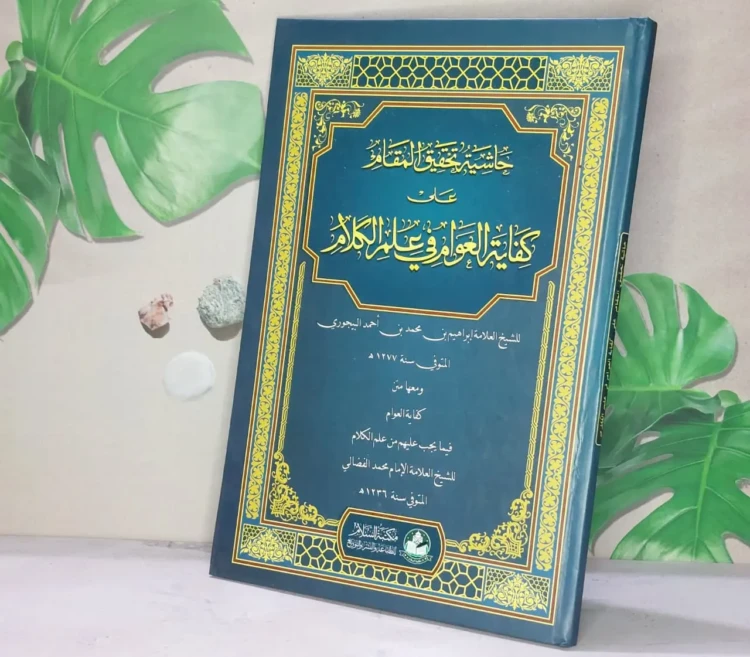 حاشية تحقيق المقام
على
كفاية العوام في علم الكلام
للشيخ العلامة ابراهيم بن محمد بن أحمد البيجوري
المتوفى سنة ١٢٧٧ هـ
ومعها متن
كفاية العوام
فيما يجب عليهم من علم الكلام
للشيخ العلامة الإمام محمد الفضالي
المتوفى سنة ١٢٣٦ هـ
مكتبة السلام